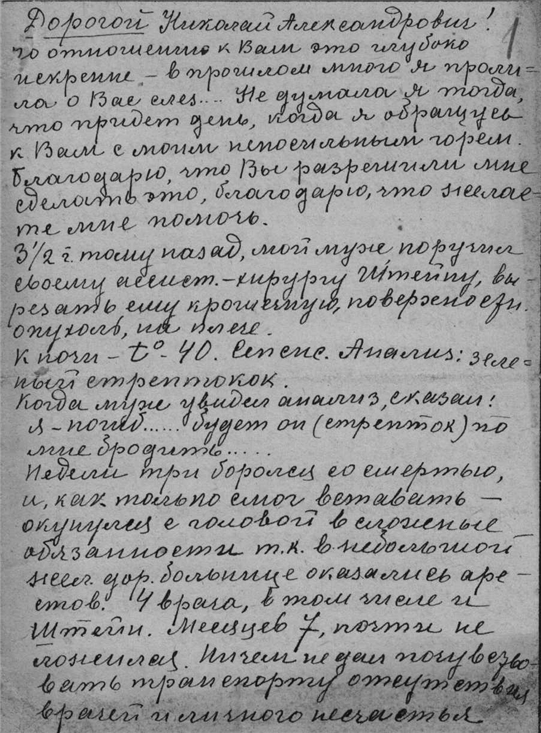 Дорогой Николай Александрович! 1
по отношению к Вам это глубоко
искренне – в прошлом много я проли-
ла о Вас слез.... Не думала я тогда,
что придет день, когда я обращусь
к Вам с моим непосильным горем.
Благодарю, что Вы разрешили мне
сделать это, благодарю, что желае-
те мне помочь.
3 1/2 г. тому назад, мой муж поручил
своему ассист.-хирургу Штейну, вы-
резать ему крошечную, поверхностн.
опухоль, на плече.
К ночи – t° - 40. Сепсис. Анализ: зеле-
ный стрептокок.
Когда муж увидел анализ, сказал:
я – погиб...... будет он (стрепток) по
мне бродить.....
Недели три боролся со смертью,
и, как только смог вставать –
окунулся с головой в сложные
обязанности т.к. в небольшой
жел. дор. больнице оказались аре-
стов. 4 врача, в том числе и
Штейн. Месяцев 7, почти не
ложился. Ничем не дал почувство-
вать транспорту отсутствия
врачей и личного несчастья